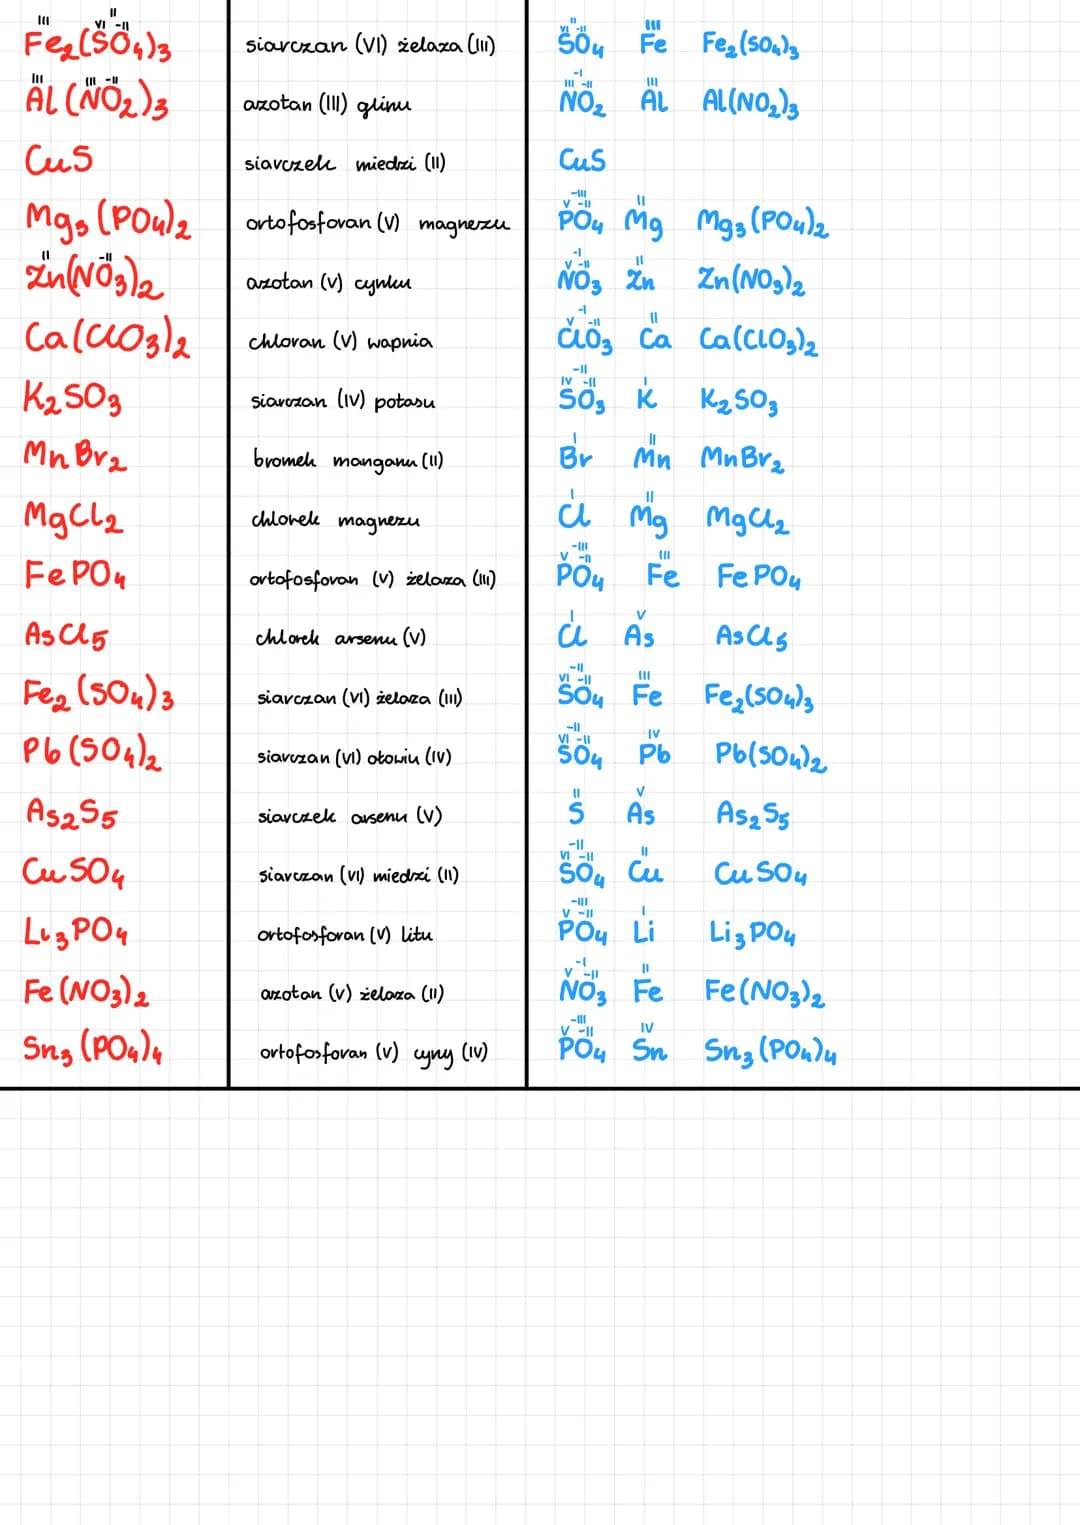 III VI II -II
Fe₂(SO₄)₃ siarczan (VI) żelaza (III) VI II -II SO₄ III Fe Fe₂(SO₄)₃
III III -II
Al(NO₂)₃ azotan (III) glinu -I III -II NO₂ III Al Al(NO₂)₃
CuS siarczek miedzi (II) CuS
Mg₃(PO₄)₂ ortofosforan (V) magnezu -III V -II PO₄ II Mg Mg₃(PO₄)₂
II -II
Zn(NO₃)₂ azotan (V) cynku -I V -II NO₃ II Zn Zn(NO₃)₂
Ca(ClO₃)₂ chloran (V) wapnia -I V -II ClO₃ II Ca Ca(ClO₃)₂
K₂SO₃ siarczan (IV) potasu -II IV -II SO₃ I K K₂SO₃
MnBr₂ bromek manganu (II) I Br II Mn MnBr₂
MgCl₂ chlorek magnezu I Cl II Mg MgCl₂
FePO₄ ortofosforan (V) żelaza (III) -III V -II PO₄ III Fe FePO₄
AsCl₅ chlorek arsenu (V) I Cl V As AsCl₅
Fe₂(SO₄)₃ siarczan (VI) żelaza (III) -II VI -II SO₄ III Fe Fe₂(SO₄)₃
Pb(SO₄)₂ siarczan (VI) ołowiu (IV) -II VI -II SO₄ IV Pb Pb(SO₄)₂
As₂S₅ siarczek arsenu (V) II S V As As₂S₅
CuSO₄ siarczan (VI) miedzi (II) -II VI -II SO₄ II Cu CuSO₄
Li₃PO₄ ortofosforan (V) litu -III V -II PO₄ I Li Li₃PO₄
Fe(NO₃)₂ azotan (V) żelaza (II) -I V -II NO₃ II Fe Fe(NO₃)₂
Sn₃(PO₄)₄ ortofosforan (V) cyny (IV) -III V -II PO₄ IV Sn Sn₃(PO₄)₄